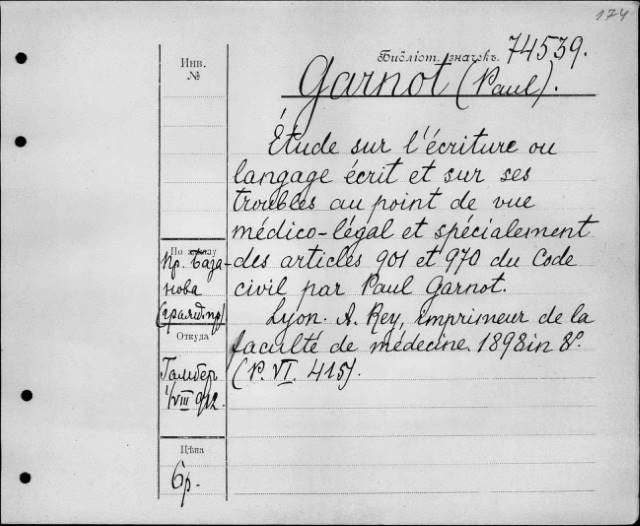 174
Библіот. значекъ. 74539.
Инв.
№
Garnot (Paul).
Étude sur l'écriture ou
langage écrit et sur ses
troubles au point de vue
médico-légal et spécialement
des articles 901 et 970 du Code
civil par Paul Garnot.
Lyon. A. Rey, imprimeur de la
faculté de médecine. 1898 in 8º.
(P. VI. 415).
По заказу
Пр. База-
нова
Откуда
Гамбер
1/VIII 912.
Цѣна
6р.